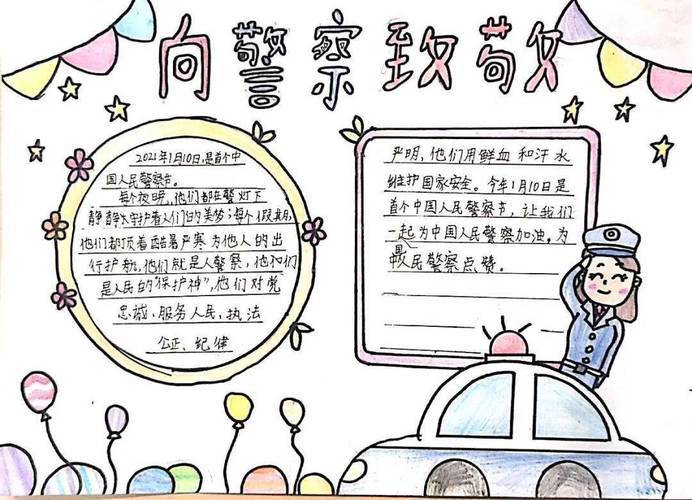 向警察致敬
2021年1月10日,是首个中
国人民警察节。
每个夜晚,他们都在警灯下
静静守护着人们的美梦;每个假期,
他们都顶着酷暑严寒为他人的出
行护航,他们就是人警察,他们
是人民的"保护神",他们对党
忠诚、服务人民,执法
公正、纪律
严明,他们用鲜血和汗水
维护国家安全。今年1月10日是
首个中国人民警察节,让我们
一起为中国人民警察加油,为
人民警察点赞。